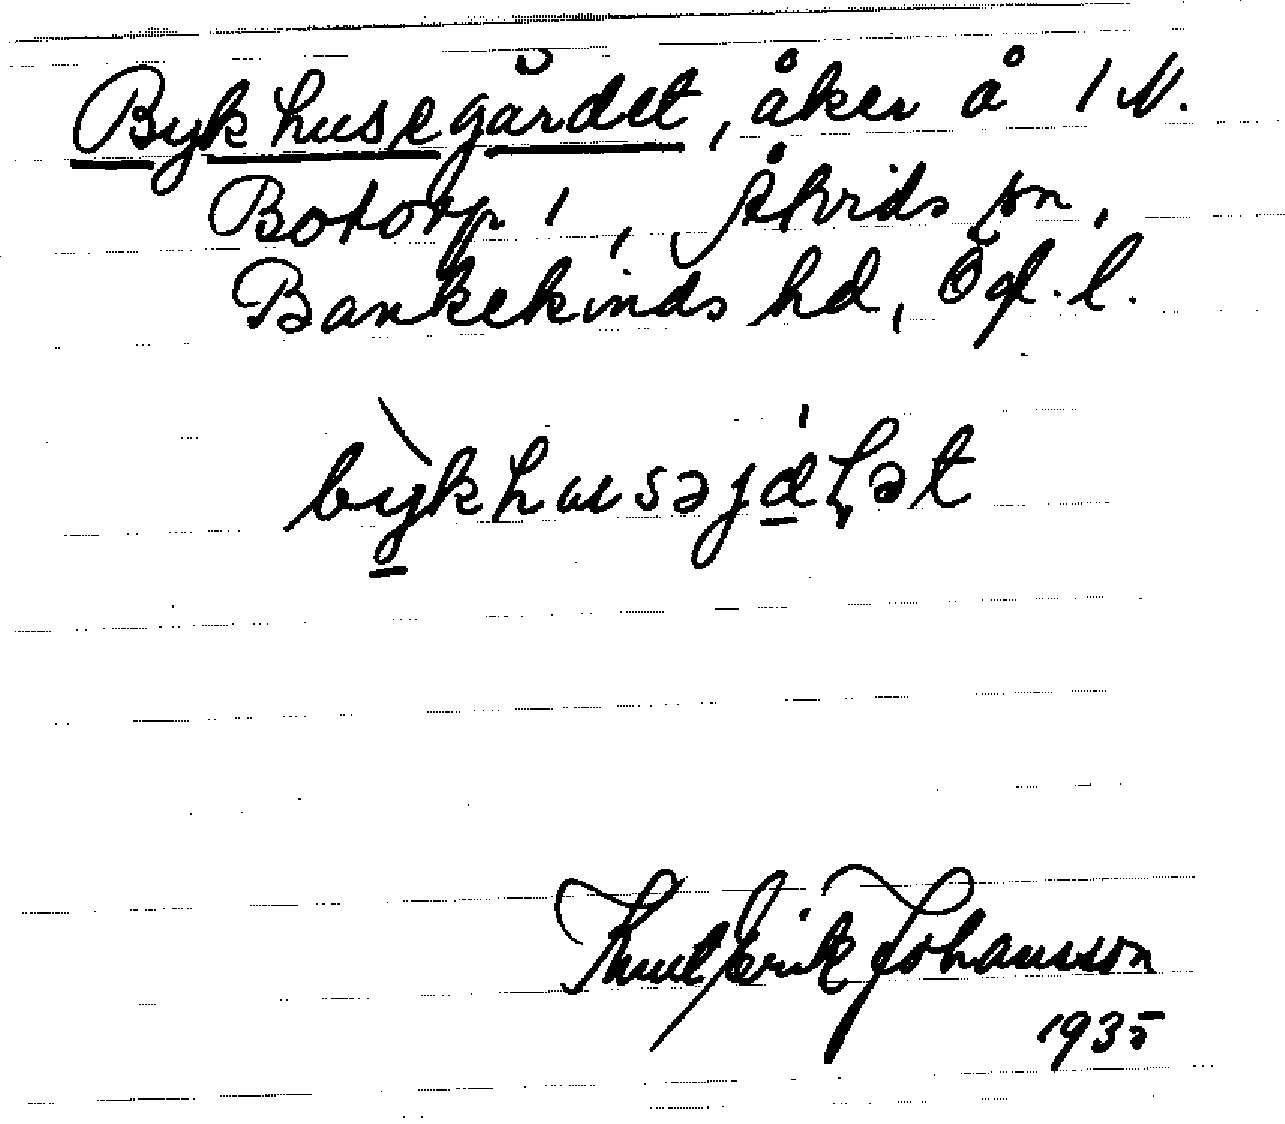 Bykhusegårdet, åker å 1 N.
Botorp 1, Åtvids sn,
Bankekinds hd, Ögl. l.
bykhusəjɑ́ḷət
Knut Erik Johansson
1935